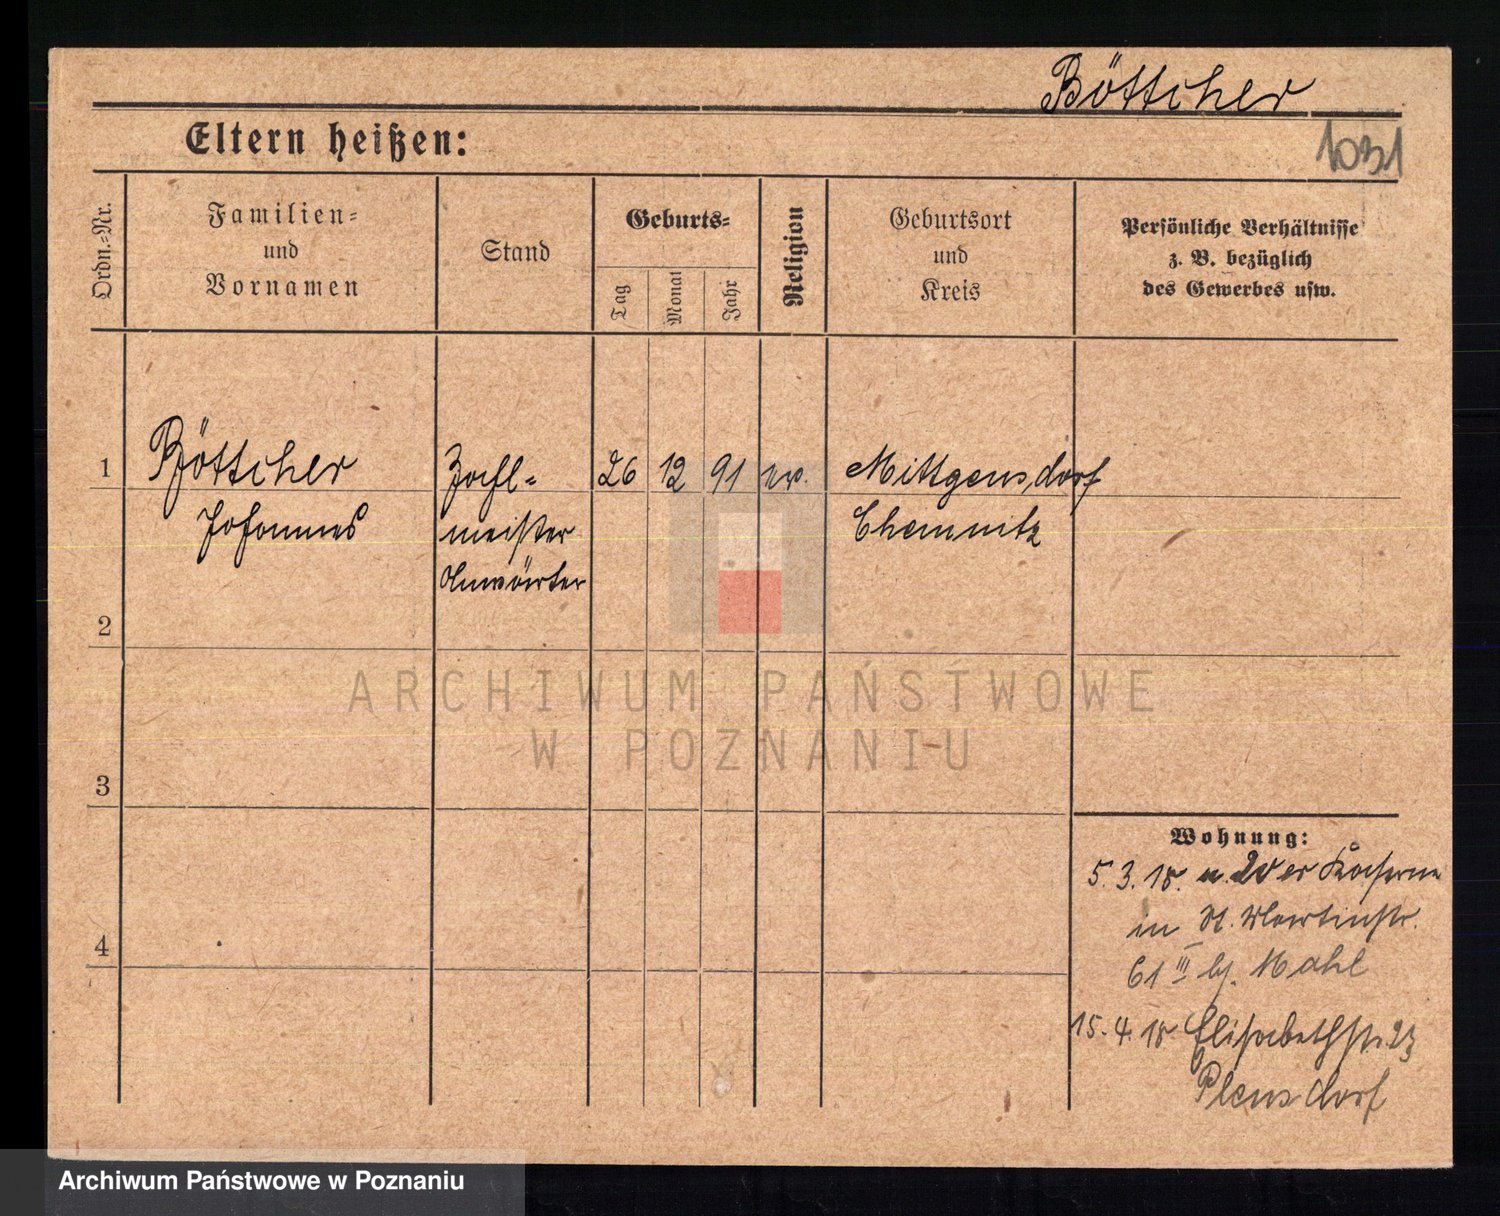 Böttcher
1031
Eltern heißen:
Ordn.=Nr.
Familien=
und
Vornamen
Stand
Geburts=
Tag
Monat
Jahr
Religion
Geburtsort
und
Kreis
Persönliche Verhältnisse
z. B. bezüglich
des Gewerbes usw.
1
Böttcher
Johannes
Zahl-
meister
Anwärter
26
12
91
ev.
Mittgensdorf
Chemnitz
2
3
4
Wohnung:
5. 3. 18. Kaserne
in St. Martinstr.
61 III bj. Mahl
15. 4. 18 Elisabethstr. 23
Plensdorf
ARCHIWUM PAŃSTWOWE
W POZNANIU
Archiwum Państwowe w Poznaniu